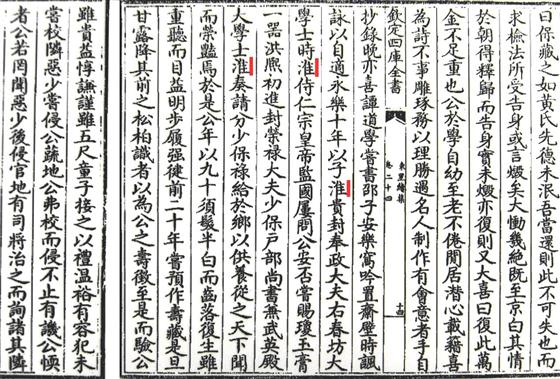 曰保藏之如黃氏先德未泯吾當還則此不可失也而
求檢法所受告身或言燬矣大慟幾絶既至京白其情
於朝得釋歸而告身實未燬亦復則又大喜曰復此萬
金不足重也公於學自幼至老不倦閒居潛心載籍善
為詩不事雕琢務以理勝遇名人制作有會意者手自
欽定四庫全書
東里續集
卷二十四
十四
抄錄晚亦喜譚道學嘗書邵子安樂窩吟置齋壁時諷
詠以自適永樂十年以子淮貴封奉政大夫右春坊大
學士時淮侍仁宗皇帝監國屢問公安否嘗賜瓊玉膏
一器洪熙初進封榮祿大夫少保戶部尚書兼武英殿
大學士淮奏請分少保祿給於鄉以供養從之天下聞
而榮豔焉於是公年以九十須髮半白而齒落復生雖
重聽而目益明步履强徤前二十年嘗預作壽藏是旦
甘露降其前之松柏識者以為公之壽徵至是而驗公
雖貴益惇謙謹雖五尺童子接之以禮溫裕有容犯未
嘗校隣惡少嘗侵公蔬地公弗校而侵不止有譏公愞
者公若罔聞惡少後侵官地有司將治之而詢諸其隣